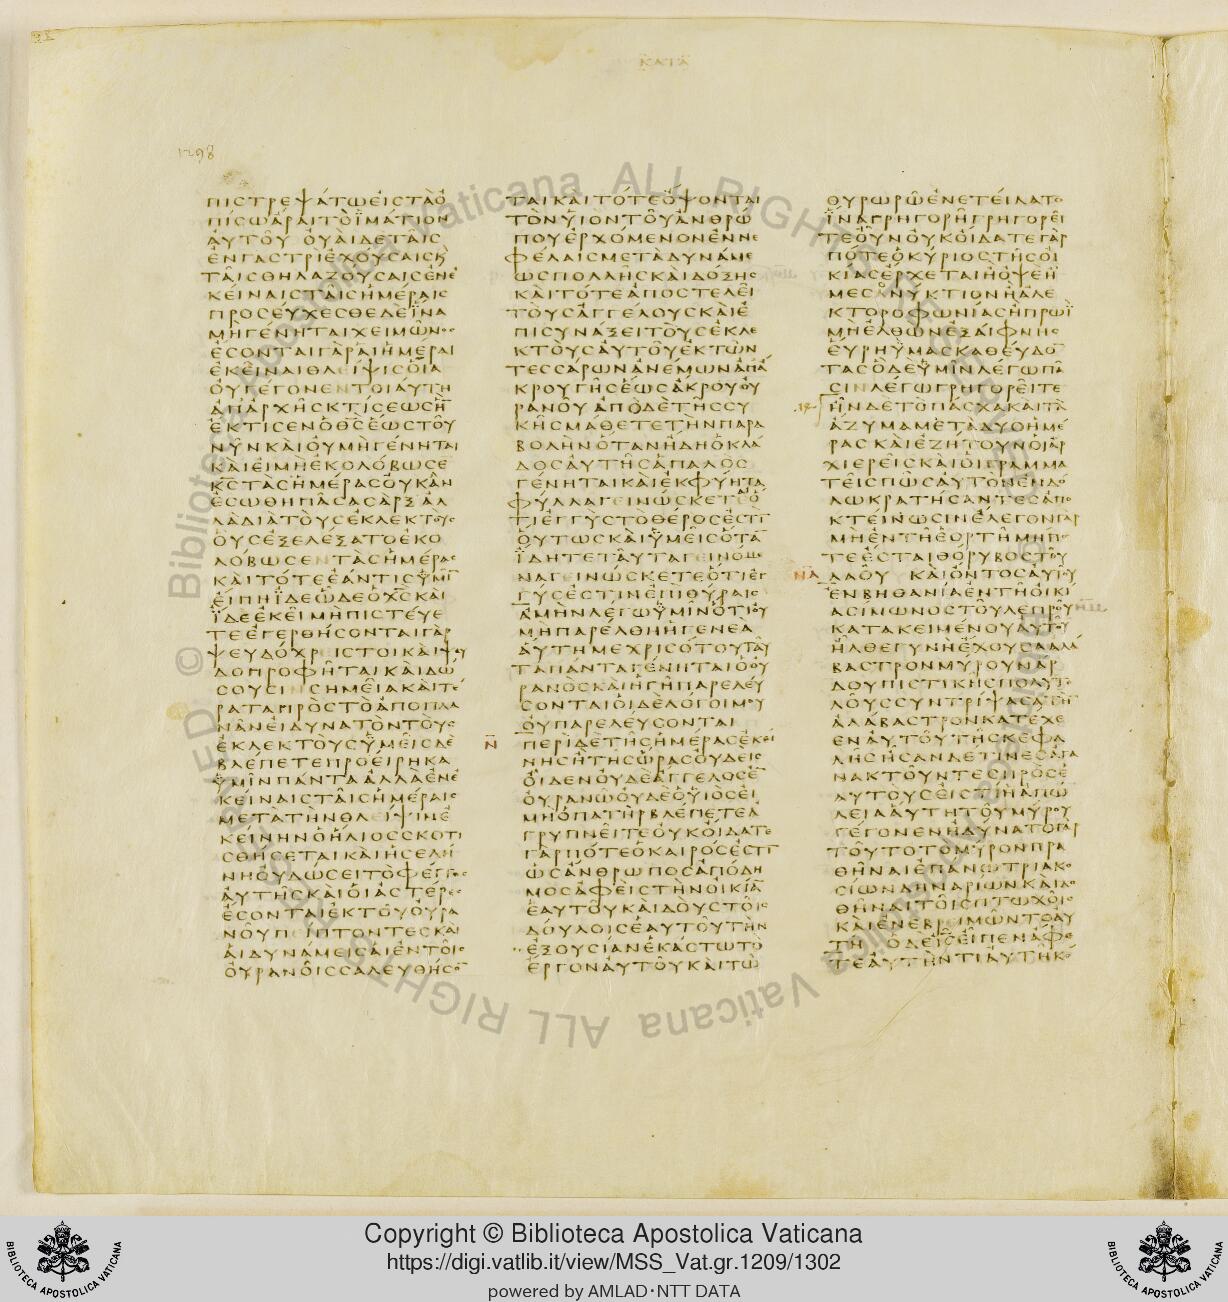 ΚΑΤΑ
1298
ΠΙΣΤΡΕΨΑΤΩΕΙΣΤΑΟ
ΠΙΣΩΑΡΑΙΤΟΙΜΑΤΙΟΝ
ΑΥΤΟΥ ΟΥΑΙΔΕΤΑΙΣ
ΕΝΓΑΣΤΡΙΕΧΟΥΣΑΙΣΚ
ΤΑΙΣΘΗΛΑΖΟΥΣΑΙΣΕΝΕ
ΚΕΙΝΑΙΣΤΑΙΣΗΜΕΡΑΙΣ
ΠΡΟΣΕΥΧΕΣΘΕΔΕΙΝΑ
ΜΗΓΕΝΗΤΑΙΧΕΙΜΩΝΟΣ
ΕΣΟΝΤΑΙΓΑΡΑΙΗΜΕΡΑΙ
ΕΚΕΙΝΑΙΘΛΕΙΨΙΣΟΙΑ
ΟΥΓΕΓΟΝΕΝΤΟΙΑΥΤΗ
ΑΠΑΡΧΗΣΚΤΙΣΕΩΣΗ̅
ΕΚΤΙΣΕΝΟΘ̅Σ̅ΕΩΣΤΟΥ
ΝΥΝΚΑΙΟΥΜΗΓΕΝΗΤΑΙ
ΚΑΙΕΙΜΗΕΚΟΛΟΒΩΣΕ
Κ̅Σ̅ΤΑΣΗΜΕΡΑΣΟΥΚΑΝ
ΕΣΩΘΗΠΑΣΑΣΑΡΞΑΛ
ΛΑΔΙΑΤΟΥΣΕΚΛΕΚΤΟΥΣ
ΟΥΣΕΞΕΛΕΞΑΤΟΕΚΟ
ΛΟΒΩΣΕΝΤΑΣΗΜΕΡΑΣ
ΚΑΙΤΟΤΕΕΑΝΤΙΣΥΜΙ̅
ΕΙΠΗΙΔΕΩΔΕΟΧ̅Σ̅ΚΑΙ
ΙΔΕΕΚΕΙΜΗΠΙΣΤΕΥΕ
ΤΕΕΓΕΡΘΗΣΟΝΤΑΙΓΑΡ
ΨΕΥΔΟΧΡΕΙΣΤΟΙΚΑΙΨΕΥ
ΔΟΠΡΟΦΗΤΑΙΚΑΙΔΩ
ΣΟΥΣΙΝΣΗΜΕΙΑΚΑΙΤΕ
ΡΑΤΑΠΡΟΣΤΟΑΠΟΠΛΑ
ΝΑΝΕΙΔΥΝΑΤΟΝΤΟΥΣ
ΕΚΛΕΚΤΟΥΣΥΜΕΙΣΔΕ
ΒΛΕΠΕΤΕΠΡΟΕΙΡΗΚΑ
ΥΜΙΝΠΑΝΤΑΑΛΛΑΕΝΕ
ΚΕΙΝΑΙΣΤΑΙΣΗΜΕΡΑΙΣ
ΜΕΤΑΤΗΝΘΛΕΙΨΙΝΕ
ΚΕΙΝΗΝΟΗΛΙΟΣΣΚΟΤΙ
ΣΘΗΣΕΤΑΙΚΑΙΗΣΕΛΗ
ΝΗΟΥΔΩΣΕΙΤΟΦΕΓΓΟΣ
ΑΥΤΗΣΚΑΙΟΙΑΣΤΕΡΕΣ
ΕΣΟΝΤΑΙΕΚΤΟΥΟΥΡΑ
ΝΟΥΠΕΙΠΤΟΝΤΕΣΚΑΙ
ΑΙΔΥΝΑΜΕΙΣΑΙΕΝΤΟΙΣ
ΟΥΡΑΝΟΙΣΣΑΛΕΥΘΗΣΟ̅
ΤΑΙΚΑΙΤΟΤΕΟΨΟΝΤΑΙ
ΤΟΝΥΙΟΝΤΟΥΑΝΘΡΩ
ΠΟΥΕΡΧΟΜΕΝΟΝΕΝΝΕ
ΦΕΛΑΙΣΜΕΤΑΔΥΝΑΜΕ
ΩΣΠΟΛΛΗΣΚΑΙΔΟΞΗΣ
ΚΑΙΤΟΤΕΑΠΟΣΤΕΛΕΙ
ΤΟΥΣΑΓΓΕΛΟΥΣΚΑΙΕ
ΠΙΣΥΝΑΞΕΙΤΟΥΣΕΚΛΕ
ΚΤΟΥΣΑΥΤΟΥΕΚΤΩΝ
ΤΕΣΣΑΡΩΝΑΝΕΜΩΝΑΠΑ
ΚΡΟΥΓΗΣΕΩΣΑΚΡΟΥΟΥ
ΡΑΝΟΥΑΠΟΔΕΤΗΣΣΥ
ΚΗΣΜΑΘΕΤΕΤΗΝΠΑΡΑ
ΒΟΛΗΝΟΤΑΝΗΔΗΟΚΛΑ
ΔΟΣΑΥΤΗΣΑΠΑΛΟΣ
ΓΕΝΗΤΑΙΚΑΙΕΚΦΥΗΤΑ
ΦΥΛΛΑΓΕΙΝΩΣΚΕΤΕΟ
ΤΙΕΓΓΥΣΤΟΘΕΡΟΣΕΣΤΙ̅
ΟΥΤΩΣΚΑΙΥΜΕΙΣΟΤΑ̅
ΙΔΗΤΕΤΑΥΤΑΓΕΙΝΟΜΕ
ΝΑΓΕΙΝΩΣΚΕΤΕΟΤΙΕΓ
ΓΥΣΕΣΤΙΝΕΠΙΘΥΡΑΙΣ
ΑΜΗΝΛΕΓΩΥΜΙΝΟΤΙΟΥ
ΜΗΠΑΡΕΛΘΗΗΓΕΝΕΑ
ΑΥΤΗΜΕΧΡΙΣΟΤΟΥΤΑΥ
ΤΑΠΑΝΤΑΓΕΝΗΤΑΙΟΟΥ
ΡΑΝΟΣΚΑΙΗΓΗΠΑΡΕΛΕΥ
ΣΟΝΤΑΙΟΙΔΕΛΟΓΟΙΜΟΥ
ΟΥΠΑΡΕΛΕΥΣΟΝΤΑΙ
Ν̅ ΠΕΡΙΔΕΤΗΣΗΜΕΡΑΣΕΚΕΙ
ΝΗΣΗΤΗΣΩΡΑΣΟΥΔΕΙΣ
ΟΙΔΕΝΟΥΔΕΑΓΓΕΛΟΣΕ̅
ΟΥΡΑΝΩΟΥΔΕΟΥΙΟΣΕΙ
ΜΗΟΠΑΤΗΡΒΛΕΠΕΤΕΑ
ΓΡΥΠΝΕΙΤΕΟΥΚΟΙΔΑΤΕ
ΓΑΡΠΟΤΕΟΚΑΙΡΟΣΕΣΤΙ̅
ΩΣΑΝΘΡΩΠΟΣΑΠΟΔΗ
ΜΟΣΑΦΕΙΣΤΗΝΟΙΚΙΑ̅
ΕΑΥΤΟΥΚΑΙΔΟΥΣΤΟΙΣ
ΔΟΥΛΟΙΣΕΑΥΤΟΥΤΗΝ
ΕΞΟΥΣΙΑΝΕΚΑΣΤΩΤΟ
ΕΡΓΟΝΑΥΤΟΥΚΑΙΤΩ
ΘΥΡΩΡΩΕΝΕΤΕΙΛΑΤΟ
ΙΝΑΓΡΗΓΟΡΗΓΡΗΓΟΡΕΙ
ΤΕΟΥΝΟΥΚΟΙΔΑΤΕΓΑΡ
ΠΟΤΕΟΚΥΡΙΟΣΤΗΣΟΙ
ΚΙΑΣΕΡΧΕΤΑΙΗΟΨΕΗ
ΜΕΣΟΝΥΚΤΙΟΝΗΑΛΕ
ΚΤΟΡΟΦΩΝΙΑΣΗΠΡΩΙ
ΜΗΕΛΘΩΝΕΞΑΙΦΝΗΣ
ΕΥΡΗΥΜΑΣΚΑΘΕΥΔΟ̅
ΤΑΣΟΔΕΥΜΙΝΛΕΓΩΠΑ
ΣΙΝΛΕΓΩΓΡΗΓΟΡΕΙΤΕ
ΗΝΔΕΤΟΠΑΣΧΑΚΑΙΤΑ
ΑΖΥΜΑΜΕΤΑΔΥΟΗΜΕ
ΡΑΣΚΑΙΕΖΗΤΟΥΝΟΙΑΡ
ΧΙΕΡΕΙΣΚΑΙΟΙΓΡΑΜΜΑ
ΤΕΙΣΠΩΣΑΥΤΟΝΕΝΔΟ
ΛΩΚΡΑΤΗΣΑΝΤΕΣΑΠΟ
ΚΤΕΙΝΩΣΙΝΕΛΕΓΟΝΓΑΡ
ΜΗΕΝΤΗΕΟΡΤΗΜΗΠΟ
ΤΕΕΣΤΑΙΘΟΡΥΒΟΣΤΟΥ
ΝΑ ΛΑΟΥ ΚΑΙΟΝΤΟΣΑΥΤΟΥ
ΕΝΒΗΘΑΝΙΑΕΝΤΗΟΙΚΙ
ΑΣΙΜΩΝΟΣΤΟΥΛΕΠΡΟΥ
ΚΑΤΑΚΕΙΜΕΝΟΥΑΥΤΟΥ
ΗΛΘΕΓΥΝΗΕΧΟΥΣΑΑΛΑ
ΒΑΣΤΡΟΝΜΥΡΟΥΝΑΡ
ΔΟΥΠΙΣΤΙΚΗΣΠΟΛΥΤΕ
ΛΟΥΣΣΥΝΤΡΙΨΑΣΑΤΗ̅
ΑΛΑΒΑΣΤΡΟΝΚΑΤΕΧΕ
ΕΝΑΥΤΟΥΤΗΣΚΕΦΑ
ΛΗΣΗΣΑΝΔΕΤΙΝΕΣΑΓΑ
ΝΑΚΤΟΥΝΤΕΣΠΡΟΣΕ
ΑΥΤΟΥΣΕΙΣΤΙΗΑΠΩ
ΛΕΙΑΑΥΤΗΤΟΥΜΥΡΟΥ
ΓΕΓΟΝΕΝΗΔΥΝΑΤΟΓΑΡ
ΤΟΥΤΟΤΟΜΥΡΟΝΠΡΑ
ΘΗΝΑΙΕΠΑΝΩΤΡΙΑΚΟ
ΣΙΩΝΔΗΝΑΡΙΩΝΚΑΙΔΟ
ΘΗΝΑΙΤΟΙΣΠΤΩΧΟΙΣ
ΚΑΙΕΝΕΒΡΕΙΜΩΝΤΟΑΥ
ΤΗ ΟΔΕΙ̅Σ̅ΕΙΠΕΝΑΦΕ
ΤΕΑΥΤΗΝΤΙΑΥΤΗΚΟ
© Biblioteca Apostolica Vaticana ALL RIGHTS RESERVED
Copyright © Biblioteca Apostolica Vaticana
https://digi.vatlib.it/view/MSS_Vat.gr.1209/1302
powered by AMLAD･NTT DATA
BIBLIOTECA APOSTOLICA VATICANA
BIBLIOTECA APOSTOLICA VATICANA